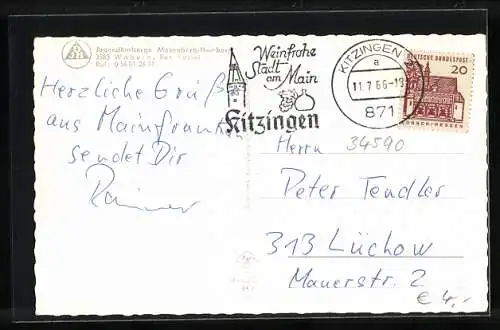 Jugendherberge Mosenberg-Homberg
3583 Wabern, Bez Kassel
Ruf: 0 56 81 26 17
Herzliche Grüße
aus Mainfranken
sendet Dir
Rainer
Weinfrohe
Stadt
am Main
Kitzingen
KITZINGEN
a
11.7.66-13
871
DEUTSCHE BUNDESPOST
20
LORSCH/HESSEN
Herrn 34590
Peter Tendler
313 Lüchow
Mauerstr. 2
€ 4,-